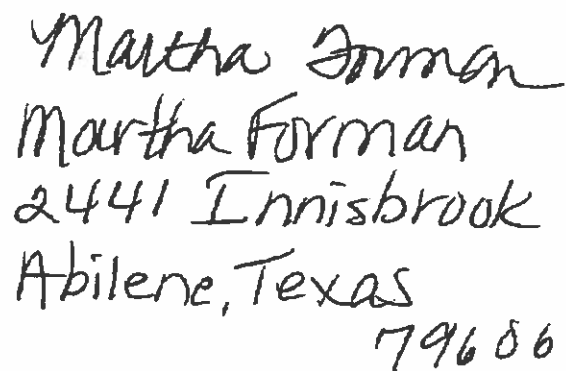 Martha Forman
Martha Forman
2441 Innisbrook
Abilene, Texas
79606